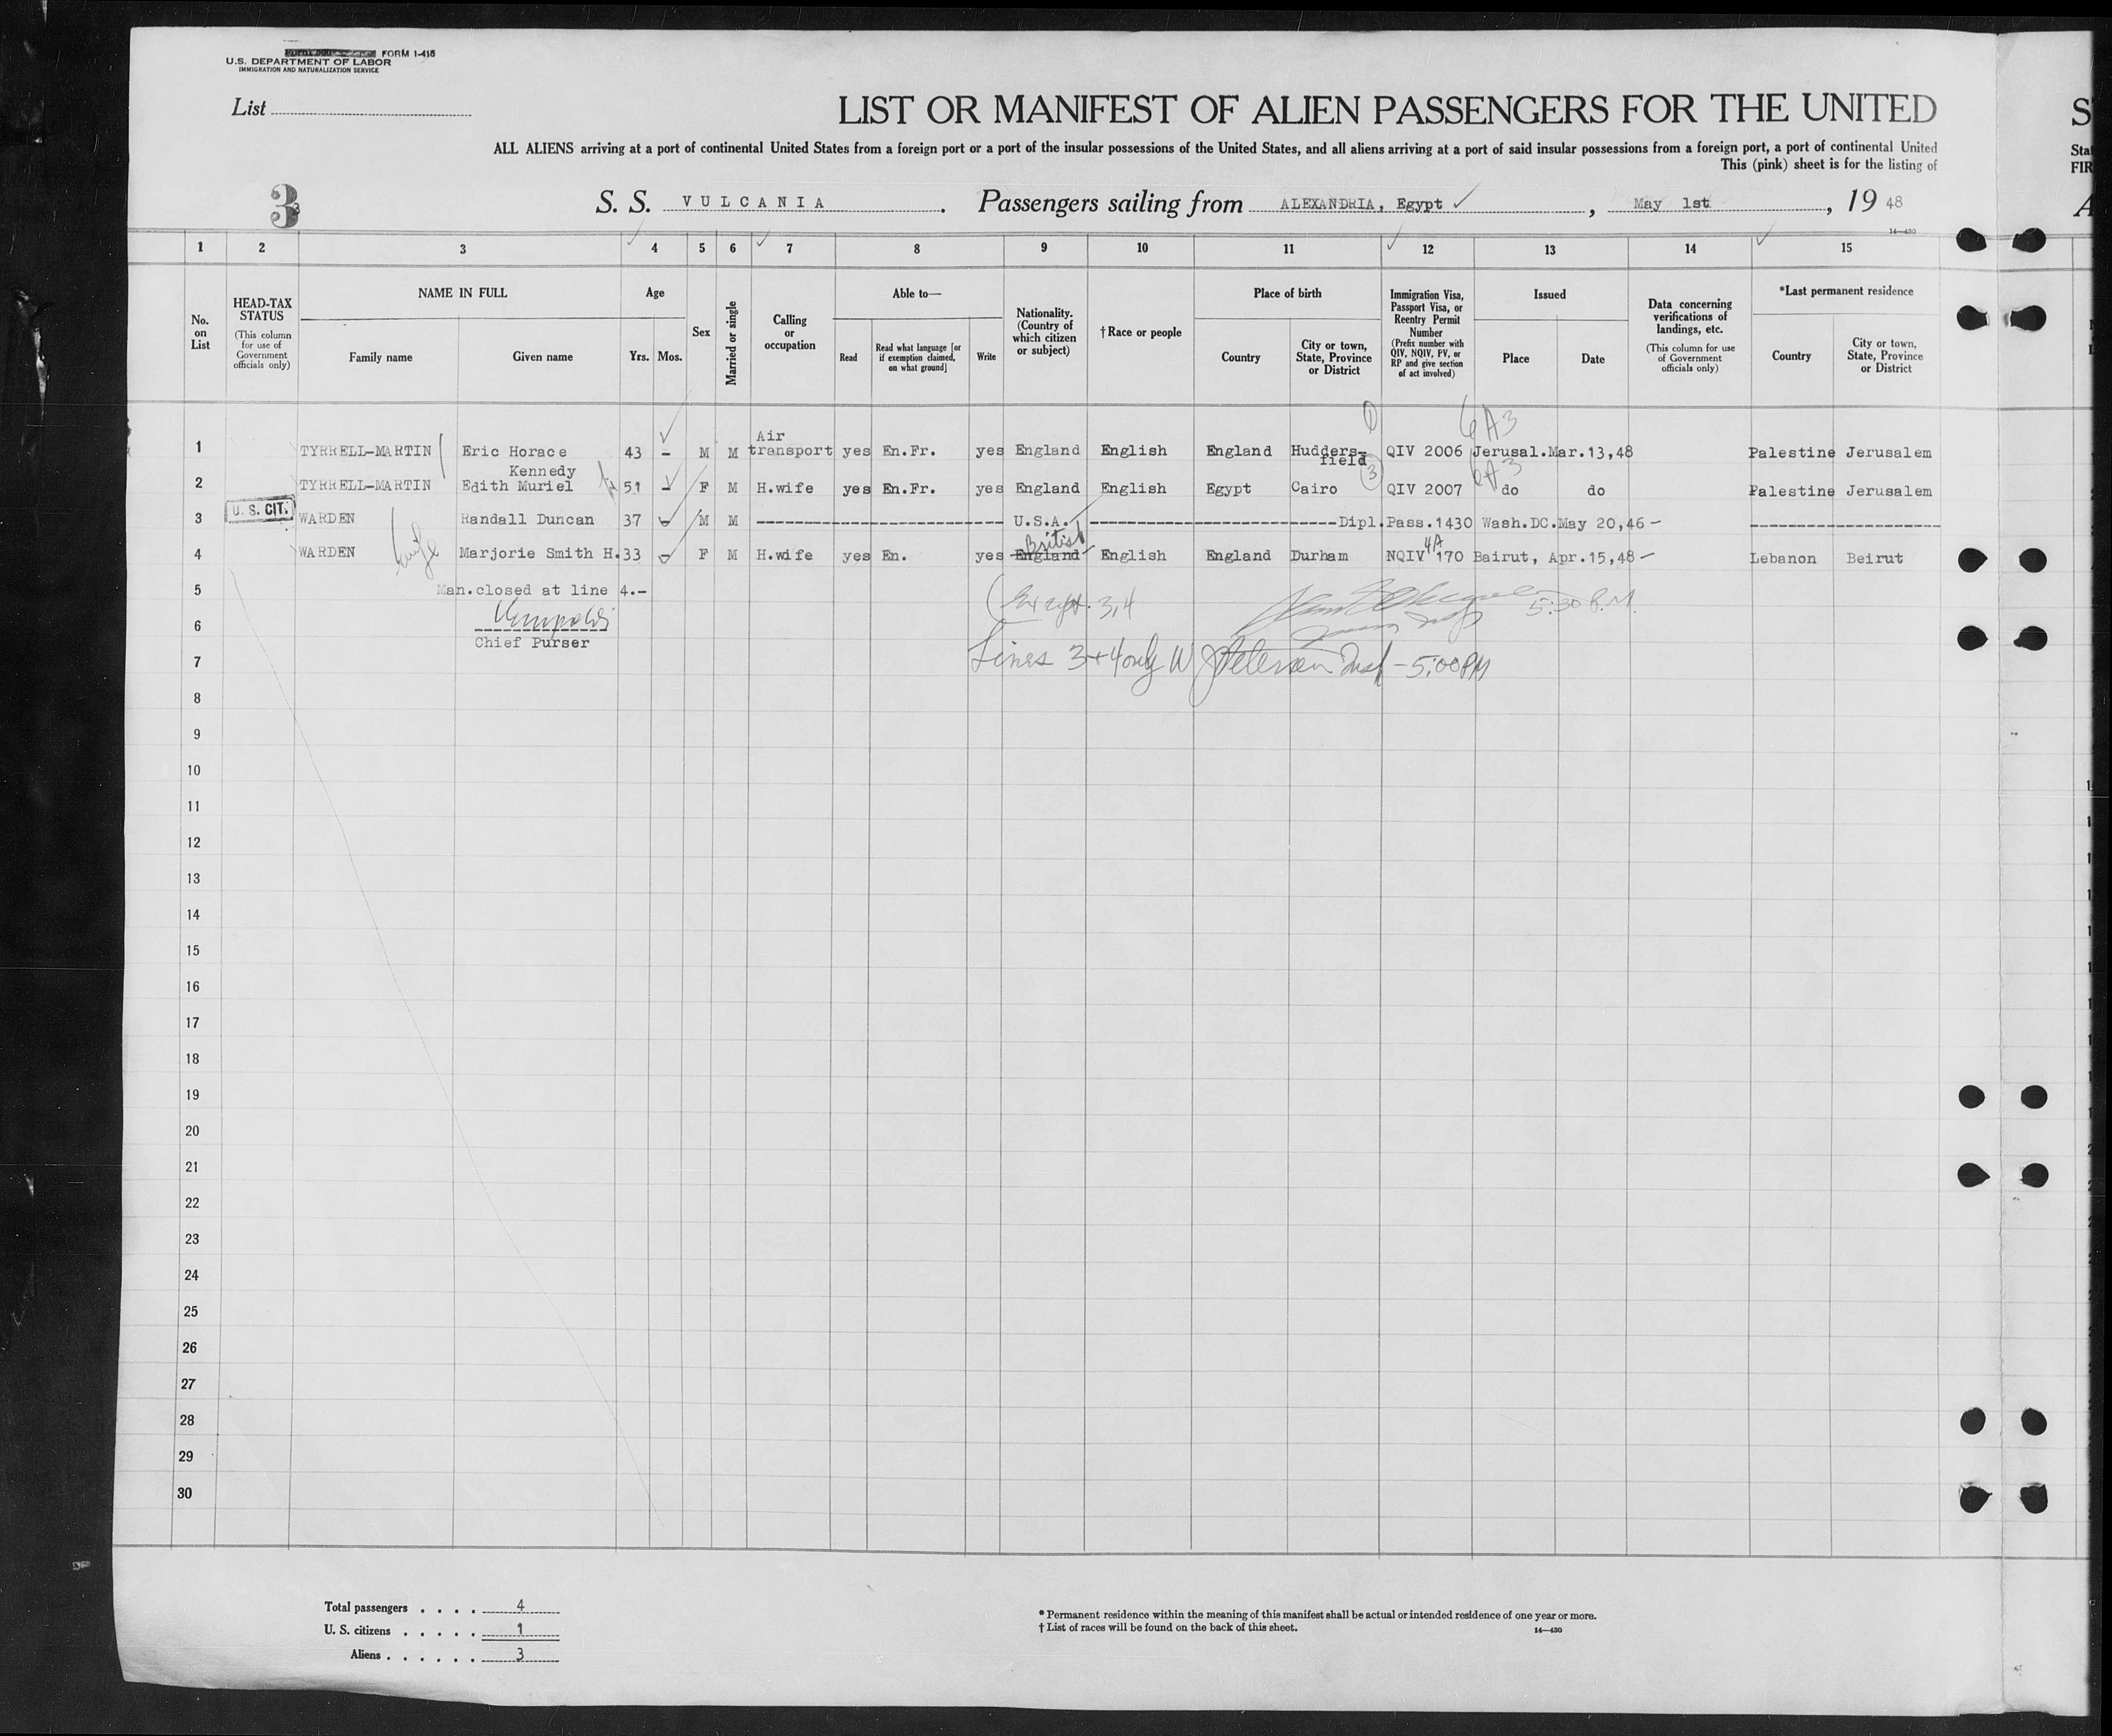 FORM 1-416
U.S. DEPARTMENT OF LABOR
IMMIGRATION AND NATURALIZATION SERVICE
List
LIST OR MANIFEST OF ALIEN PASSENGERS FOR THE UNITED
S
ALL ALIENS arriving at a port of continental United States from a foreign port or a port of the insular possessions of the United States, and all aliens arriving at a port of said insular possessions from a foreign port, a port of continental United
Stat
This (pink) sheet is for the listing of
FIR
3
S. S. VULCANIA. Passengers sailing from ALEXANDRIA, Egypt ✓, May 1st, 19 48
A
14—430
1 2 3 4 5 6 7 8 9 10 11 12 13 14 15
No. on List
HEAD-TAX STATUS (This column for use of Government officials only)
NAME IN FULL
Family name Given name
Age
Yrs. Mos.
Sex
Married or single
Calling or occupation
Able to—
Read Read what language [or if exemption claimed, on what ground] Write
Nationality. (Country of which citizen or subject)
†Race or people
Place of birth
Country City or town, State, Province or District
Immigration Visa, Passport Visa, or Reentry Permit Number (Prefix number with QIV, NQIV, PV, or RP and give section of act involved)
Issued
Place Date
Data concerning verifications of landings, etc. (This column for use of Government officials only)
*Last permanent residence
Country City or town, State, Province or District
1 6A3
1 TYRRELL-MARTIN Eric Horace Kennedy 43 - M M Air transport yes En.Fr. yes England English England Hudders-field QIV 2006 Jerusal. Mar.13,48 Palestine Jerusalem
3 6A3
2 TYRRELL-MARTIN Edith Muriel 51 - F M H.wife yes En.Fr. yes England English Egypt Cairo QIV 2007 do do Palestine Jerusalem
U. S. CIT.
3 WARDEN Randall Duncan 37 - M M ---- U.S.A. ---- Dipl.Pass.1430 Wash.DC.May 20,46 - ----
wife British 4A
4 WARDEN Marjorie Smith H. 33 - F M H.wife yes En. yes England English England Durham NQIV 170 Bairut, Apr.15,48 - Lebanon Beirut
5 Man.closed at line 4.-
(Except. 3,4 5:30 P.M.
6
Chief Purser
7 Lines 3+4 only W Peterson Insp - 5:00 PM
8
9
10
11
12
13
14
15
16
17
18
19
20
21
22
23
24
25
26
27
28
29
30
Total passengers . . . . 4
U. S. citizens . . . . . 1
Aliens . . . . . . 3
* Permanent residence within the meaning of this manifest shall be actual or intended residence of one year or more.
† List of races will be found on the back of this sheet.
14—430